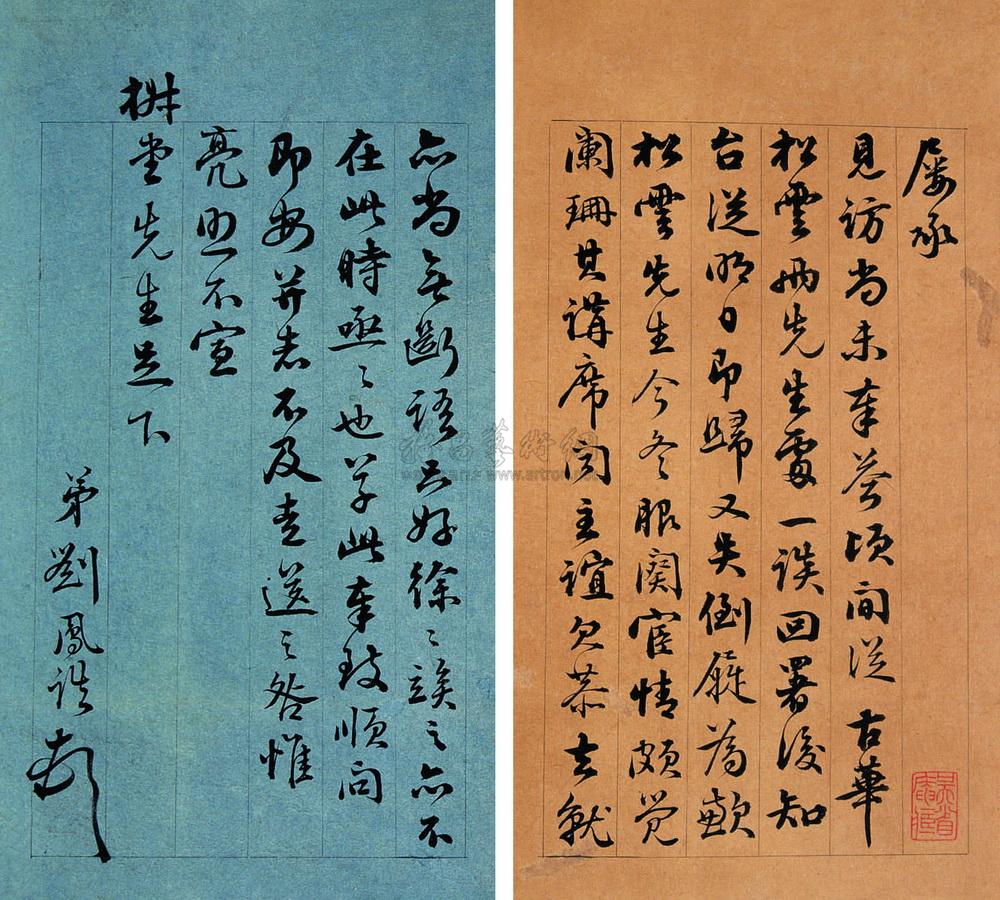 屢承
見訪尚未奉答頃間從古華
松雲兩先生處一談回署後知
台從明日即歸又失倒屣為歉
松雲先生今冬服闋宦情頗覺
闌珊其講席閱主誼欠恭去就
亦尚無斷語只好徐〻談之亦不
在此時亟〻也草此奉致順問
即安并老不及走送之咎惟
亮照不宣
椒堂先生足下
弟劉鳳誥頓
www.artron.net